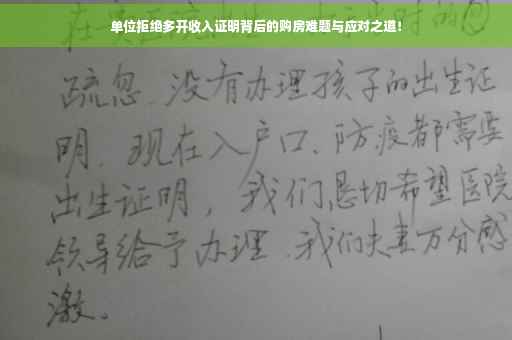 单位拒绝多开收入证明背后的购房难题与应对之道！
疏忽、没有办理孩子的出生证
明、现在入户口、防疫都需要
出生证明，我们恳切希望医院
领导给予办理、我们夫妻万分感
激。